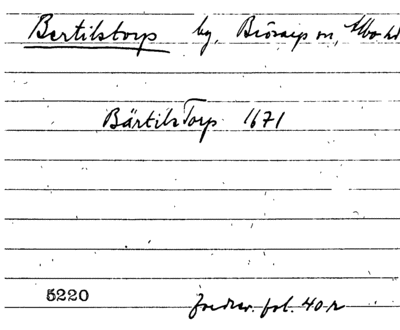 Bertilstorp by, Brösarps sn, Albo hd
BärtilsTorp 1671
5220
Jordrev. fol. 40 r